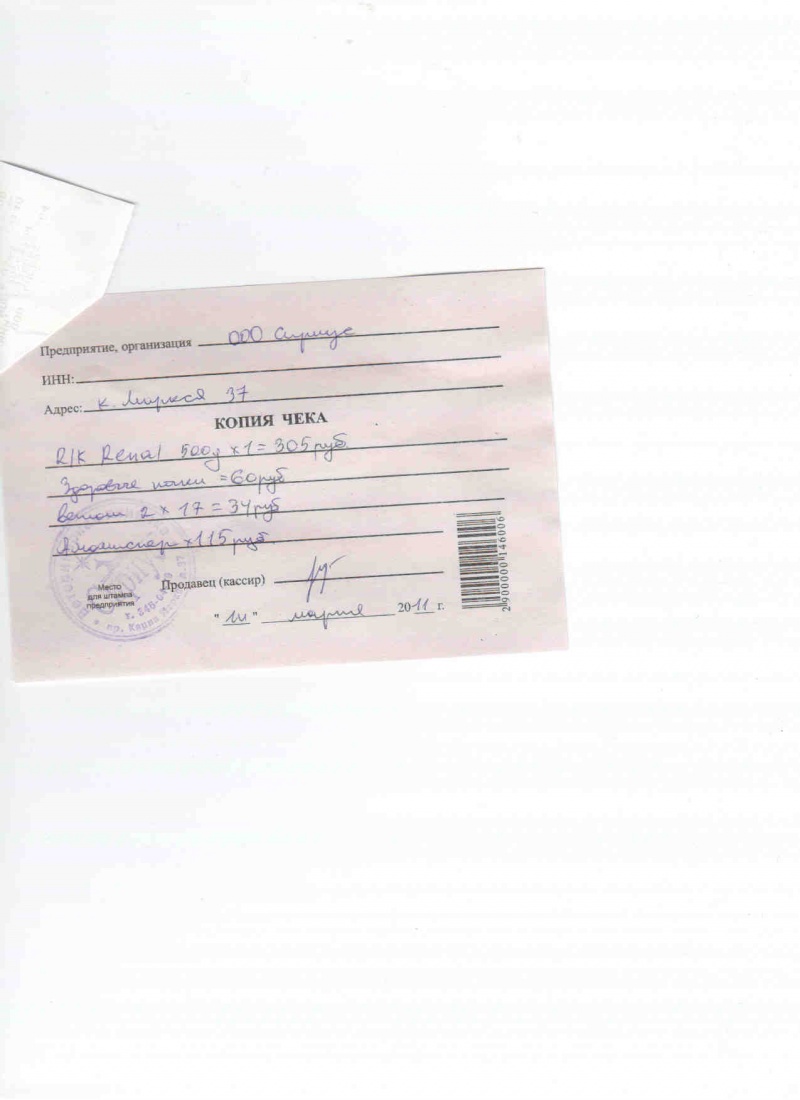 Предприятие, организация ООО Сириус
ИНН:
Адрес: К. Маркса 37
КОПИЯ ЧЕКА
R/K Renal 500g x 1 = 305 руб
Здоровье почки = 60 руб
2 x 17 = 34 руб
x 115 руб
Место
для штампа
предприятия
Продавец (кассир)
" " марта 2011 г.
2900000146006
пр. Карла